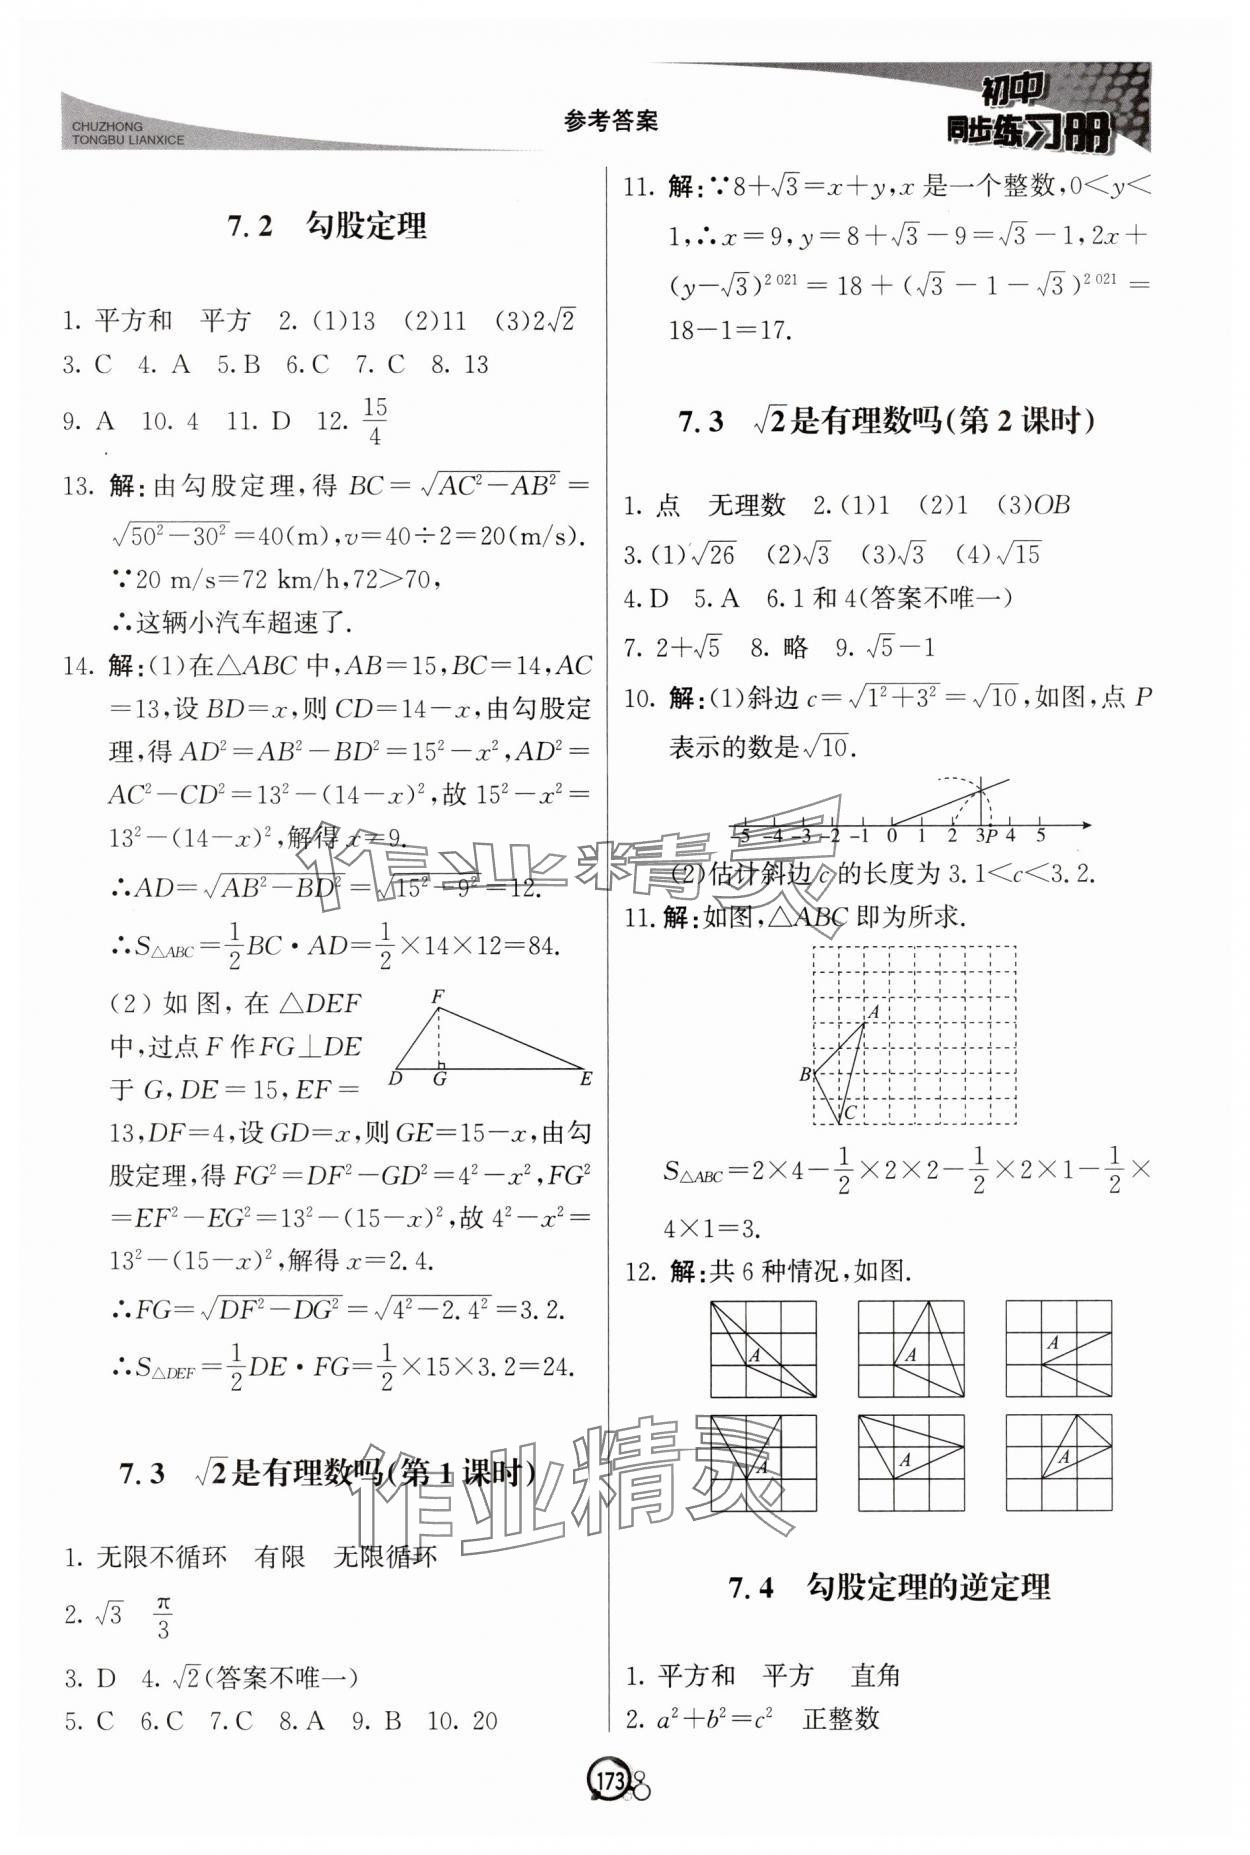 CHUZHONG
TONGBU LIANXICE
参考答案
初中
同步练习册
7.2 勾股定理
1. 平方和 平方 2. (1)13 (2)11 (3)2√2
3. C 4. A 5. B 6. C 7. C 8. 13
9. A 10. 4 11. D 12. 15/4
13. 解:由勾股定理,得 BC=√(AC²-AB²)=
√(50²-30²)=40(m),v=40÷2=20(m/s).
∵20 m/s=72 km/h,72>70,
∴这辆小汽车超速了.
14. 解:(1)在△ABC 中,AB=15,BC=14,AC
=13,设 BD=x,则 CD=14-x,由勾股定
理,得 AD²=AB²-BD²=15²-x²,AD²=
AC²-CD²=13²-(14-x)²,故 15²-x²=
13²-(14-x)²,解得 x=9.
∴AD=√(AB²-BD²)=√(15²-9²)=12.
∴S△ABC=1/2BC·AD=1/2×14×12=84.
(2)如图,在△DEF
中,过点 F 作 FG⊥DE
于 G,DE=15,EF=
F
D G E
13,DF=4,设 GD=x,则 GE=15-x,由勾
股定理,得 FG²=DF²-GD²=4²-x²,FG²
=EF²-EG²=13²-(15-x)²,故 4²-x²=
13²-(15-x)²,解得 x=2.4.
∴FG=√(DF²-DG²)=√(4²-2.4²)=3.2.
∴S△DEF=1/2DE·FG=1/2×15×3.2=24.
7.3 √2是有理数吗(第1课时)
1. 无限不循环 有限 无限循环
2. √3 π/3
3. D 4. √2(答案不唯一)
5. C 6. C 7. C 8. A 9. B 10. 20
11. 解:∵8+√3=x+y,x 是一个整数,0<y<
1,∴x=9,y=8+√3-9=√3-1,2x+
(y-√3)²⁰²¹=18+(√3-1-√3)²⁰²¹=
18-1=17.
7.3 √2是有理数吗(第2课时)
1. 点 无理数 2. (1)1 (2)1 (3)OB
3. (1)√26 (2)√3 (3)√3 (4)√15
4. D 5. A 6. 1 和 4(答案不唯一)
7. 2+√5 8. 略 9. √5-1
10. 解:(1)斜边 c=√(1²+3²)=√10,如图,点 P
表示的数是√10.
-5 -4 -3 -2 -1 0 1 2 3P 4 5
(2)估计斜边 c 的长度为 3.1<c<3.2.
11. 解:如图,△ABC 即为所求.
A
B
C
S△ABC=2×4-1/2×2×2-1/2×2×1-1/2×
4×1=3.
12. 解:共 6 种情况,如图.
A A A
A A A
7.4 勾股定理的逆定理
1. 平方和 平方 直角
2. a²+b²=c² 正整数
173
作业精灵
作业精灵